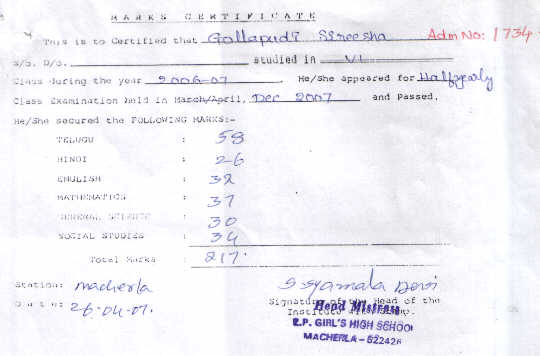 MARKS CERTIFICATE
This is to Certified that Gollapudi Sireesha Adm No: 1734
S/o. D/o. studied in VI
Class during the year 2006-07 He/She appeared for Halfyearly
Class Examination held in March/April, Dec 2007 and Passed.
He/She secured the FOLLOWING MARKS:-
TELUGU : 58
HINDI : 26
ENGLISH : 32
MATHEMATICS : 37
GENERAL SCIENCE : 30
SOCIAL STUDIES : 34
Total Marks : 217.
Station: Macherla S Syamala Devi
Date: 26-04-07. Signature of the Head of the
Head Mistress
Z.P. GIRL'S HIGH SCHOOL
MACHERLA - 522426